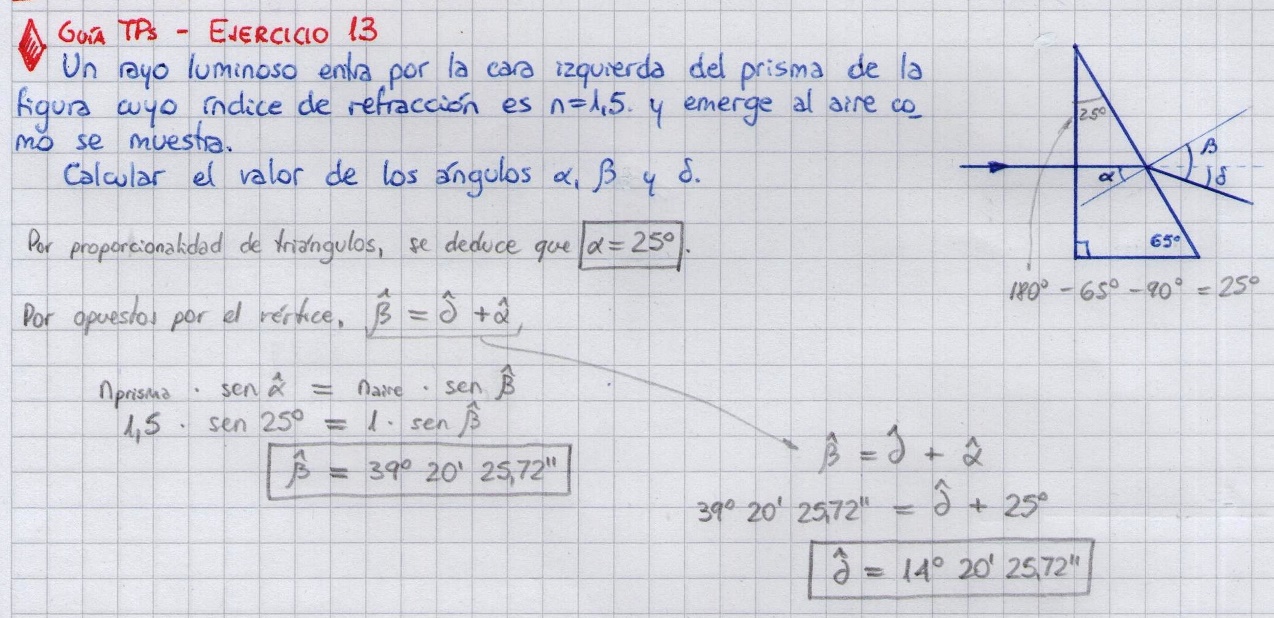 GUÍA TPs - EJERCICIO 13
Un rayo luminoso entra por la cara izquierda del prisma de la
figura cuyo índice de refracción es n=1,5. y emerge al aire co_
mo se muestra.
Calcular el valor de los ángulos α, β y δ.
25°
α
β
δ
65°
180° - 65° - 90° = 25°
Por proporcionalidad de triángulos, se deduce que α = 25°.
Por opuestos por el vértice, β̂ = ∂̂ + α̂,
nprisma · sen α̂ = naire · sen β̂
1,5 · sen 25° = 1 · sen β̂
β̂ = 39° 20' 25,72"
β̂ = ∂̂ + α̂
39° 20' 25,72" = ∂̂ + 25°
∂̂ = 14° 20' 25,72"